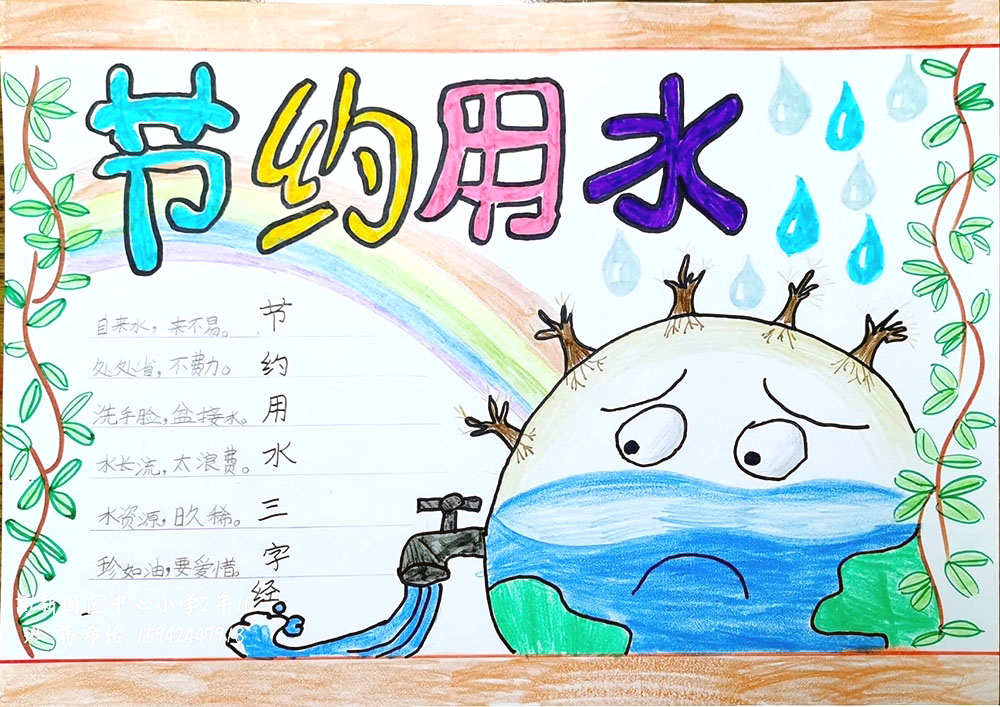 节约用水
节约用水三字经
自来水，来不易。
处处省，不费力。
洗手脸，盆接水。
水长流，太浪费。
水资源，日久稀。
珍如油，要爱惜。
园区中心小学2年
希怡